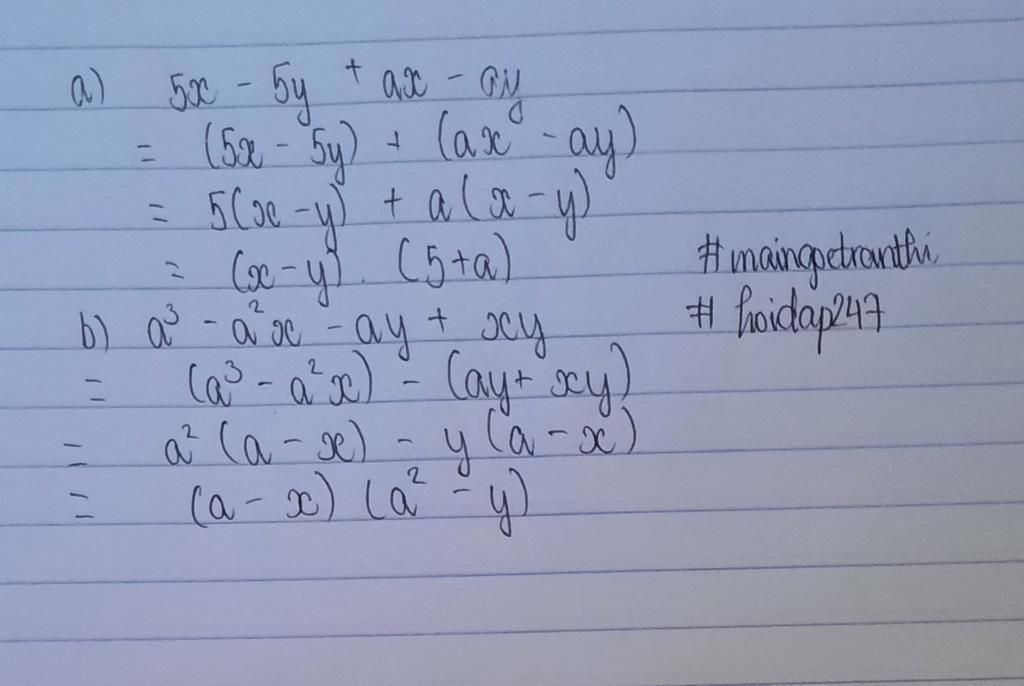 a) 5x - 5y + ax - ay
= (5x - 5y) + (ax - ay)
= 5(x - y) + a(x - y)
= (x - y) . (5 + a)
#maingoetranthi
# hoidap247
b) a³ - a²x - ay + xy
= (a³ - a²x) - (ay + xy)
= a² (a - x) - y (a - x)
= (a - x) (a² - y)